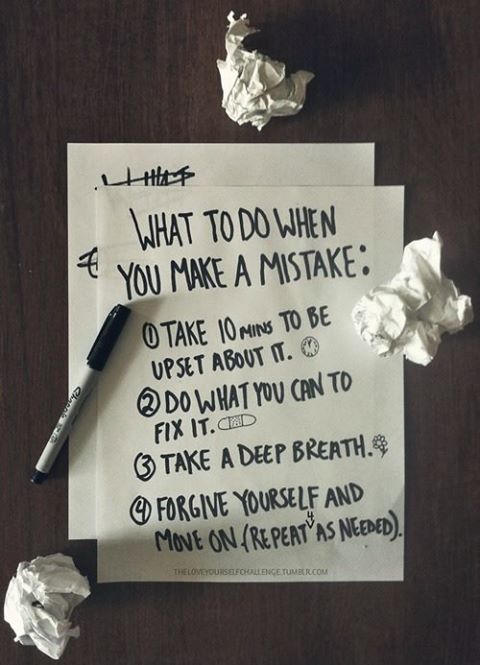 WHAT
WHAT TO DO WHEN
YOU MAKE A MISTAKE:
① TAKE 10 MINS TO BE
UPSET ABOUT IT.
② DO WHAT YOU CAN TO
FIX IT.
③ TAKE A DEEP BREATH.
④ FORGIVE YOURSELF AND
MOVE ON. (REPEAT 4 AS NEEDED).
THELOVEYOURSELFCHALLENGE.TUMBLR.COM